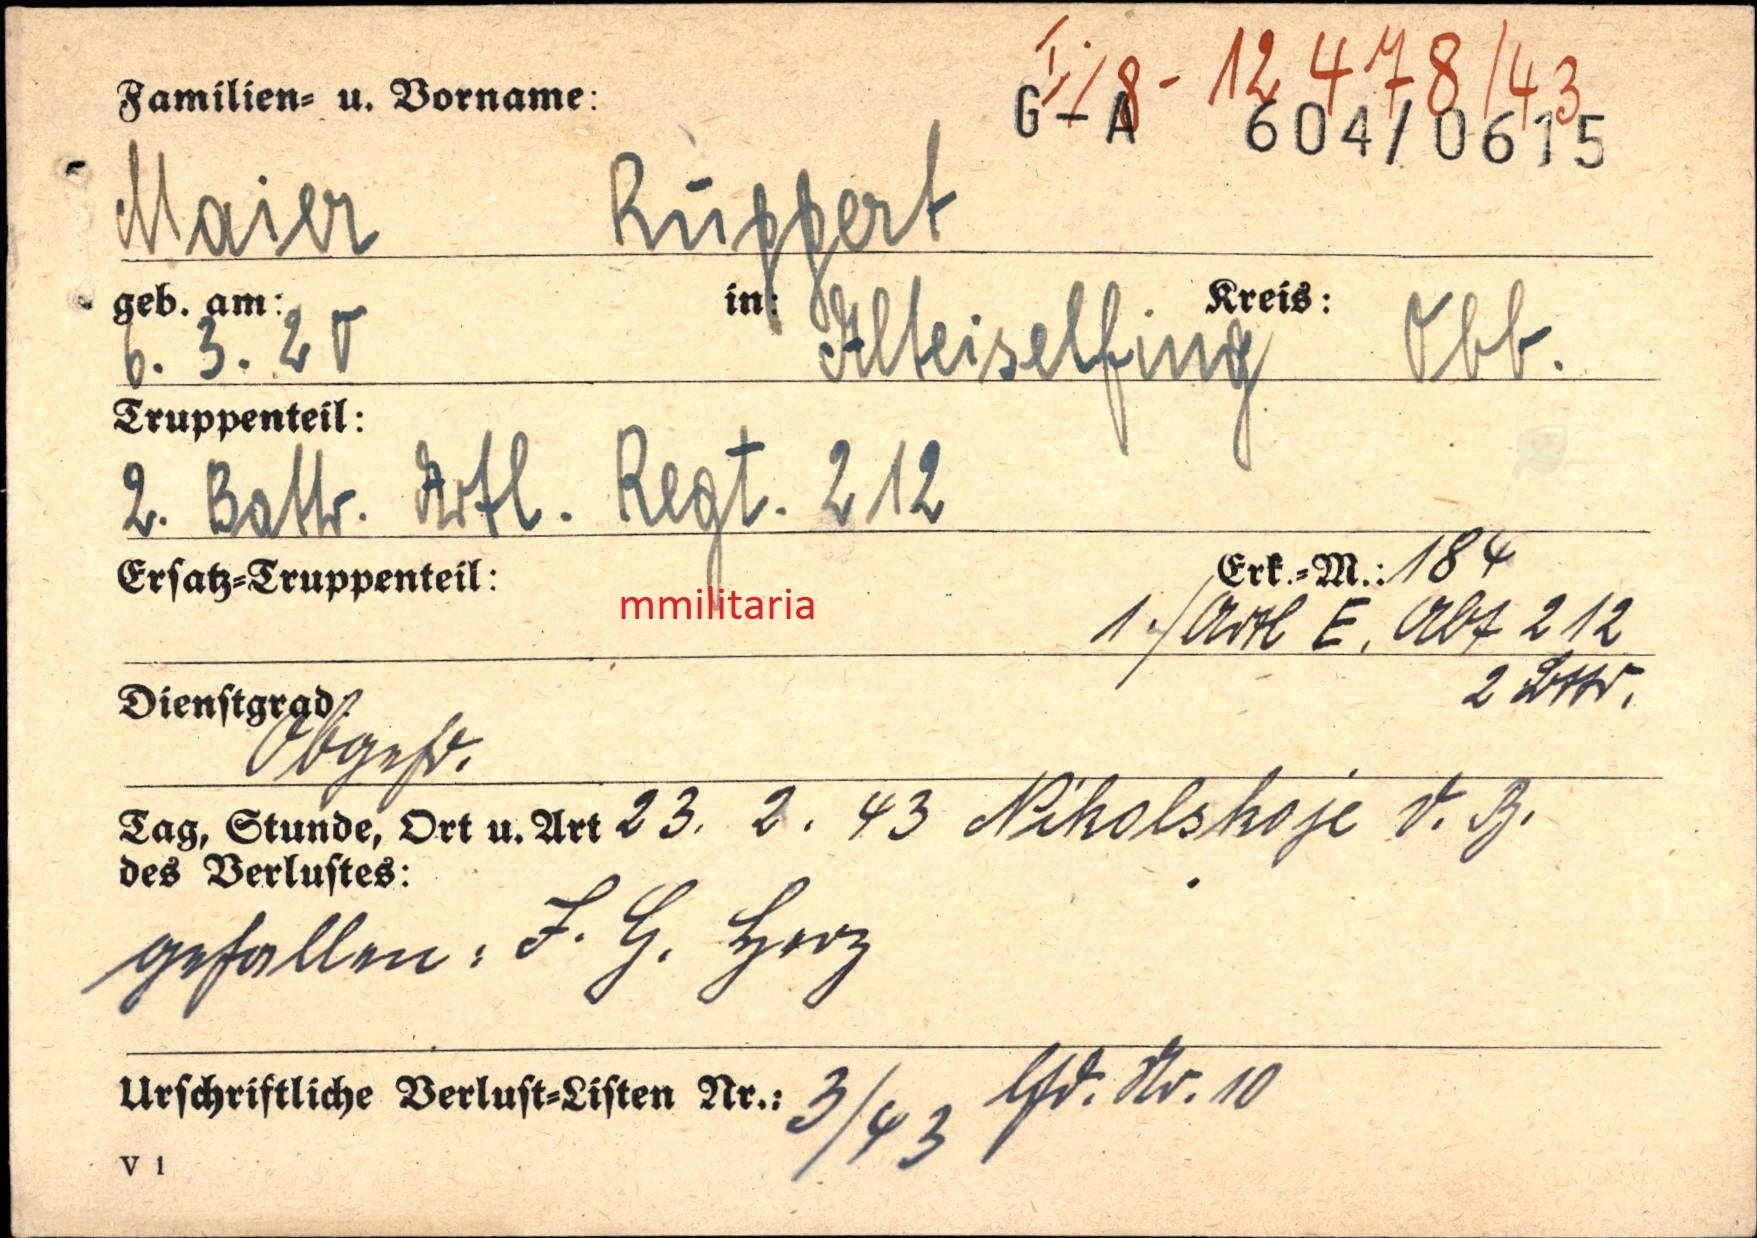 I/8 - 12 478/43
Familien- u. Vorname:
G-A 604/0615
Maier Ruppert
geb. am: in: Kreis:
6. 3. 20 Alteiselfing Obb.
Truppenteil:
2. Battr. Artl. Regt. 212
Ersatz-Truppenteil: Erk.-M.: 184
mmilitaria
1./Artl E. Abt 212
2 Bttr.
Dienstgrad:
Obgefr.
Tag, Stunde, Ort u. Art 23. 2. 43 Nikolskoje
des Verlustes:
gefallen: I. G. Herz
Urschriftliche Verlust-Listen Nr.: 3/43 lfd. Nr. 10
V 1